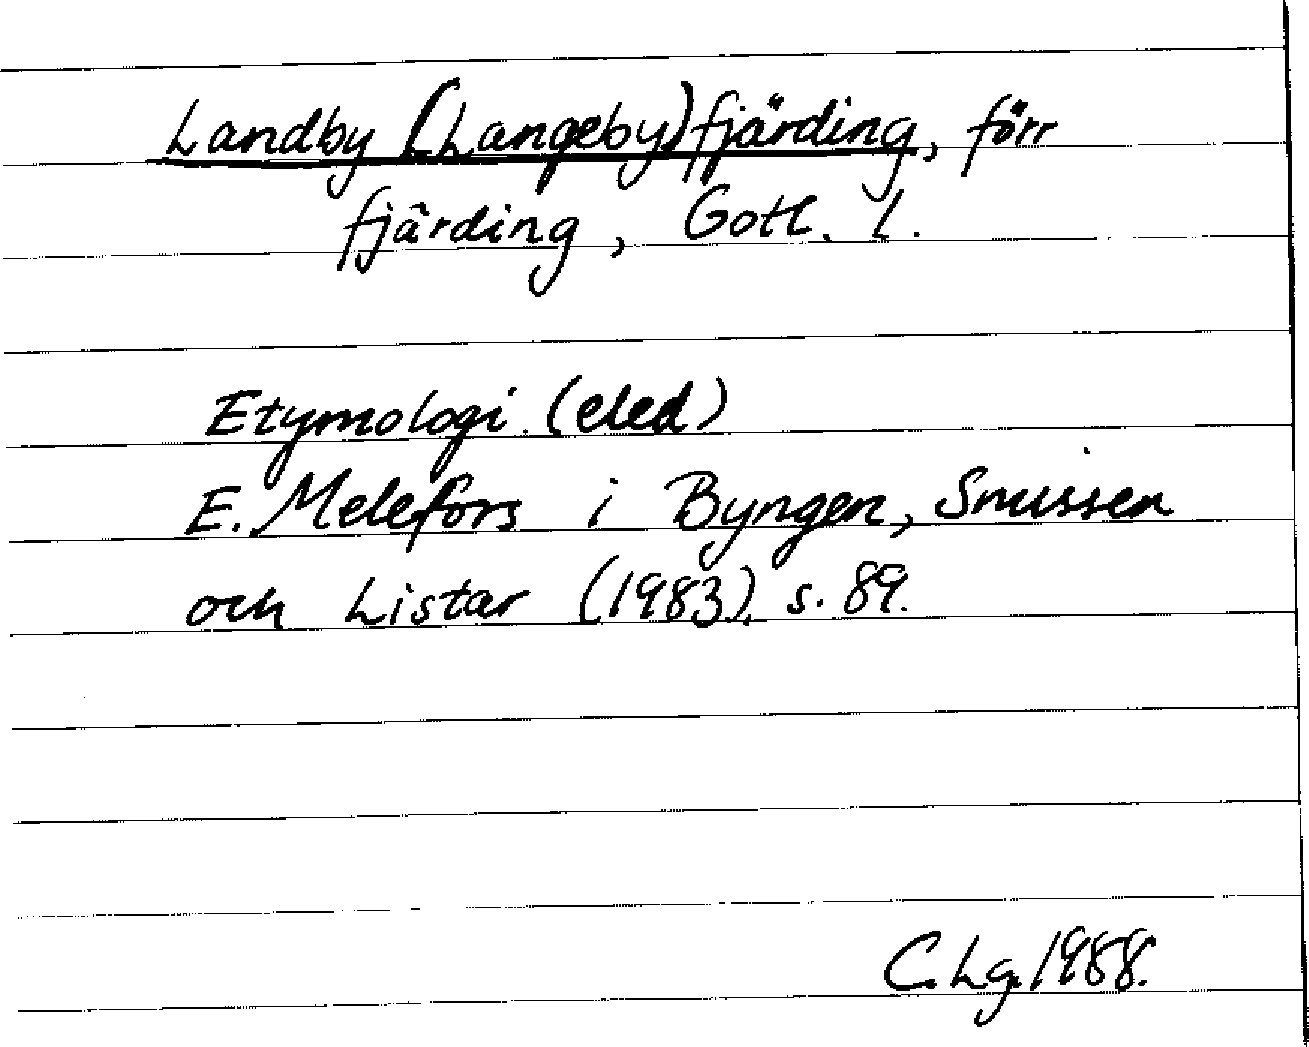 Landby (Langeby)fjärding, förr
fjärding, Gotl. l.
Etymologi (eled)
E. Melefors i Byngen, Snussen
och Listar (1983), s. 89.
C. Lg. 1988.